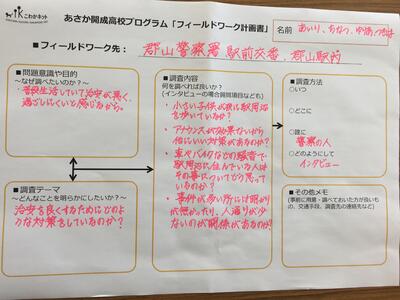 こおりやま こわかネット
あさか開成高校プログラム「フィールドワーク計画書」
名前
あいり、ちなつ、
■フィールドワーク先：郡山警察署 駅前交番、郡山駅前
■問題意識や目的
～なぜ調べたいのか？～
・普段生活していて治安が悪く、
過ごしにくいと感じるから。
■調査テーマ
～どんなことを明らかにしたいか？～
治安を良くするためにどのよ
うな対策をしているのか？
■調査内容
何を調べれば良いか？
（インタビューの場合質問項目なども）
・小さい子供が夜に駅周辺
を歩いているか？
・アナウンスが効果ないなら
他にいい対策があるのか？
・車やバイクなどの騒音で
駅周辺に住んでいる人は
その事についてどう思って
いるのか？
・事件が多い所には明かり
が無かったり、人通りが少
ないのが関係があるのか？
■調査方法
○いつ
○どこに
○誰に
警察の人
○どのようにして
インタビュー
■その他メモ
（事前に用意・調べておいた方が良いも
の、交通手段、調査先の連絡先など）